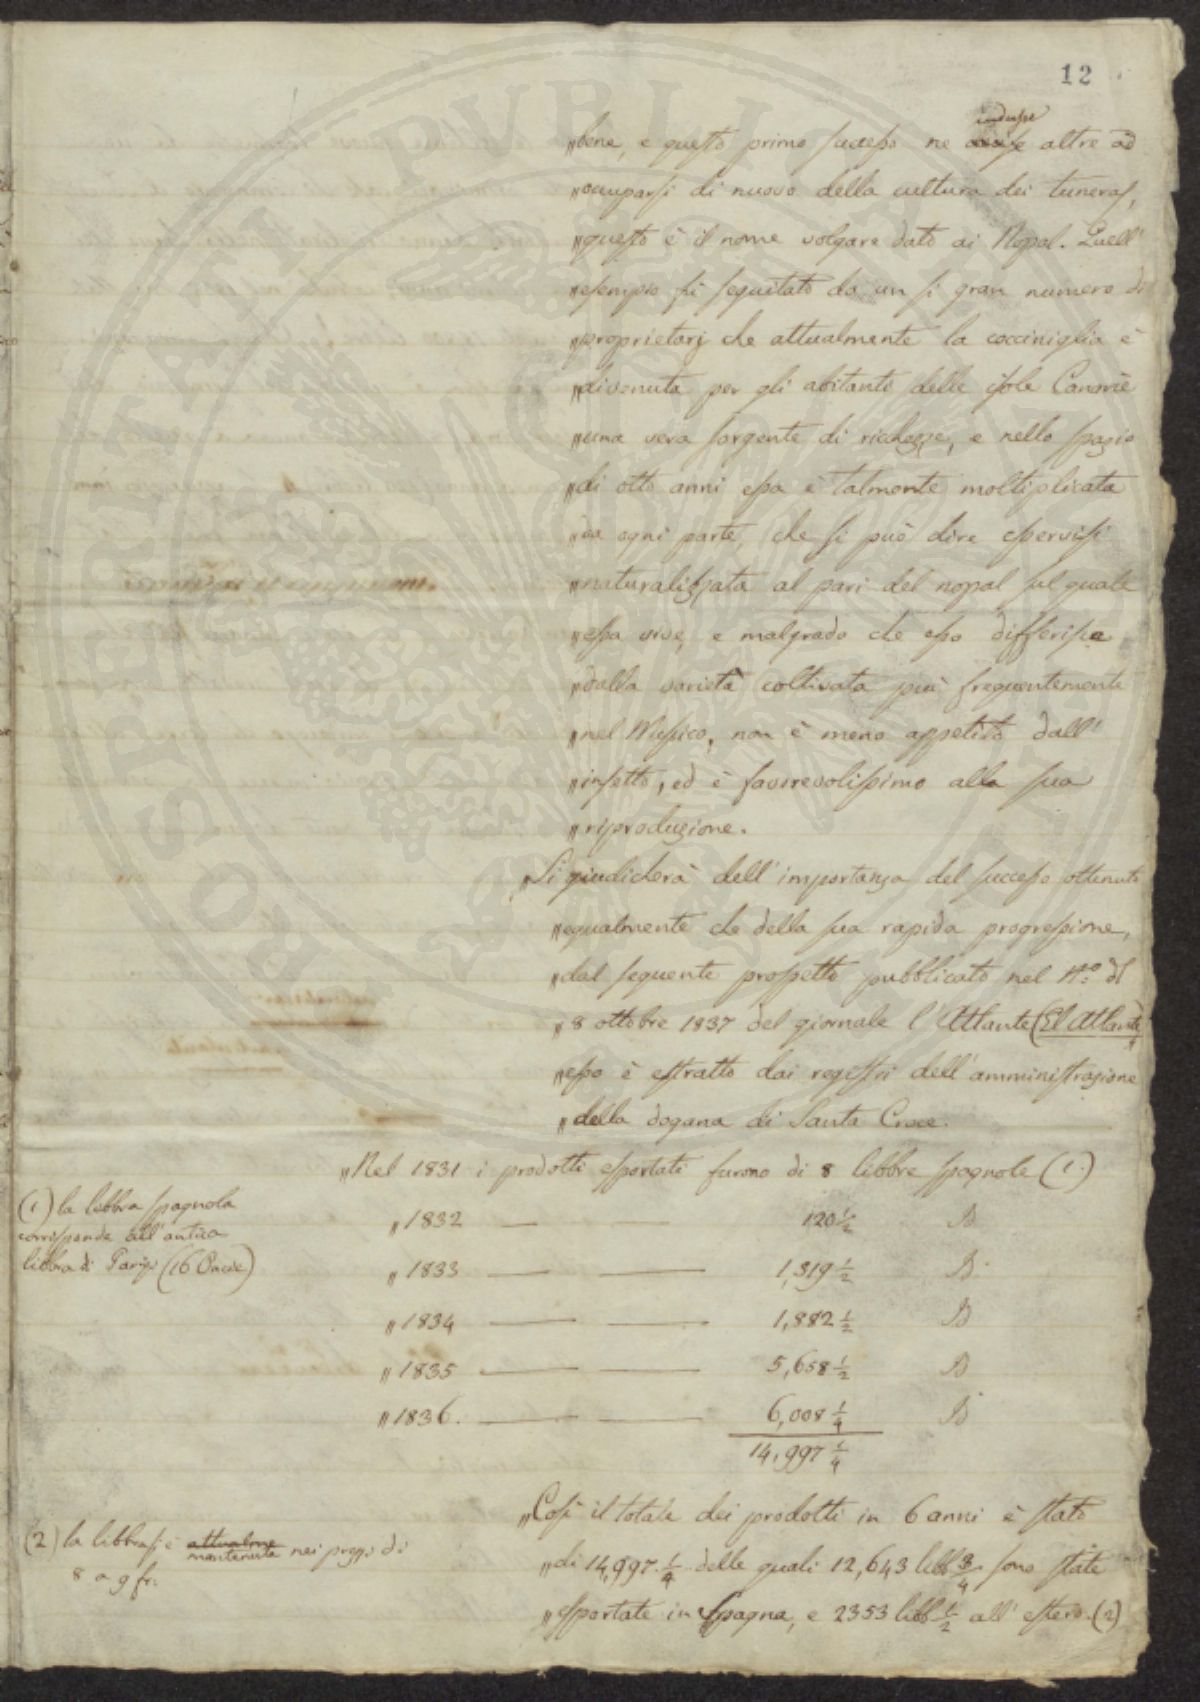 12
indusse
„bene, e questo primo successo ne altre ad
„occuparsi di nuovo della cultura dei tuneras,
„questo è il nome volgare dato ai Nopal. Quell'
„esempio fù seguitato da un sì gran numero di
„proprietarj che attualmente la cocciniglia è
„divenuta per gli abitanti delle isole Canarie
„una vera sorgente di richezze, e nello spazio
„di otto anni essa è talmente moltiplicata
„da ogni parte, che si può dire esservisi
„naturalizzata al pari del nopal sul quale
„essa vive, e malgrado che esso differisca
„dalla varietà coltivata più frequentemente
„nel Messico, non è meno appetito dall'
„insetto, ed è favorevolissimo alla sua
„riproduzione.
„Si giudicherà dell'importanza del successo ottenuto
„egualmente che della sua rapida progressione,
„dal seguente prospetto pubblicato nel N.o dl
„8 ottobre 1837 del giornale l'Atlante (El Atlante)
„esso è estratto dai registri dell'amministrazione
„della dogana di Santa Croce.
„Nel 1831 i prodotti esportati furono di 8 libbre spagnole (1.)
(1) la libbra spagnola
corrisponde all'antica
libbra di Parigi (16 Oncie)
„1832 — — 120 1/2 D
„1833 — — 1,319 1/2 D
„1834 — — 1,882 1/2 D
„1835 — — 5,658 1/2 D
„1836. — — 6,008 1/4 D
14,997 1/4
„Così il totale dei prodotti in 6 anni è stato
„di 14,997. 1/4 delle quali 12,643 libb 3/4 sono state
„esportate in Spagna, e 2353 libb 1/2 all'estero. (2)
(2) la libbra si è attualme
mantenuta nei prezzi di
8 a 9 fr.